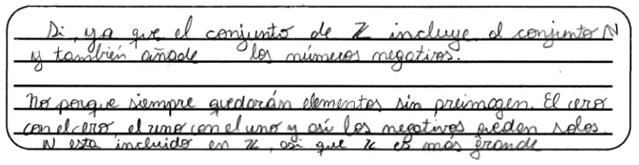 Si, ya que el conjunto de Z incluye al conjunto N
y también añade los números negativos.
No porque siempre quedarán elementos sin preimagen. El cero
con el cero, el uno con el uno y así los negativos quedan solos.
N esta incluido en Z, asi que Z es más grande